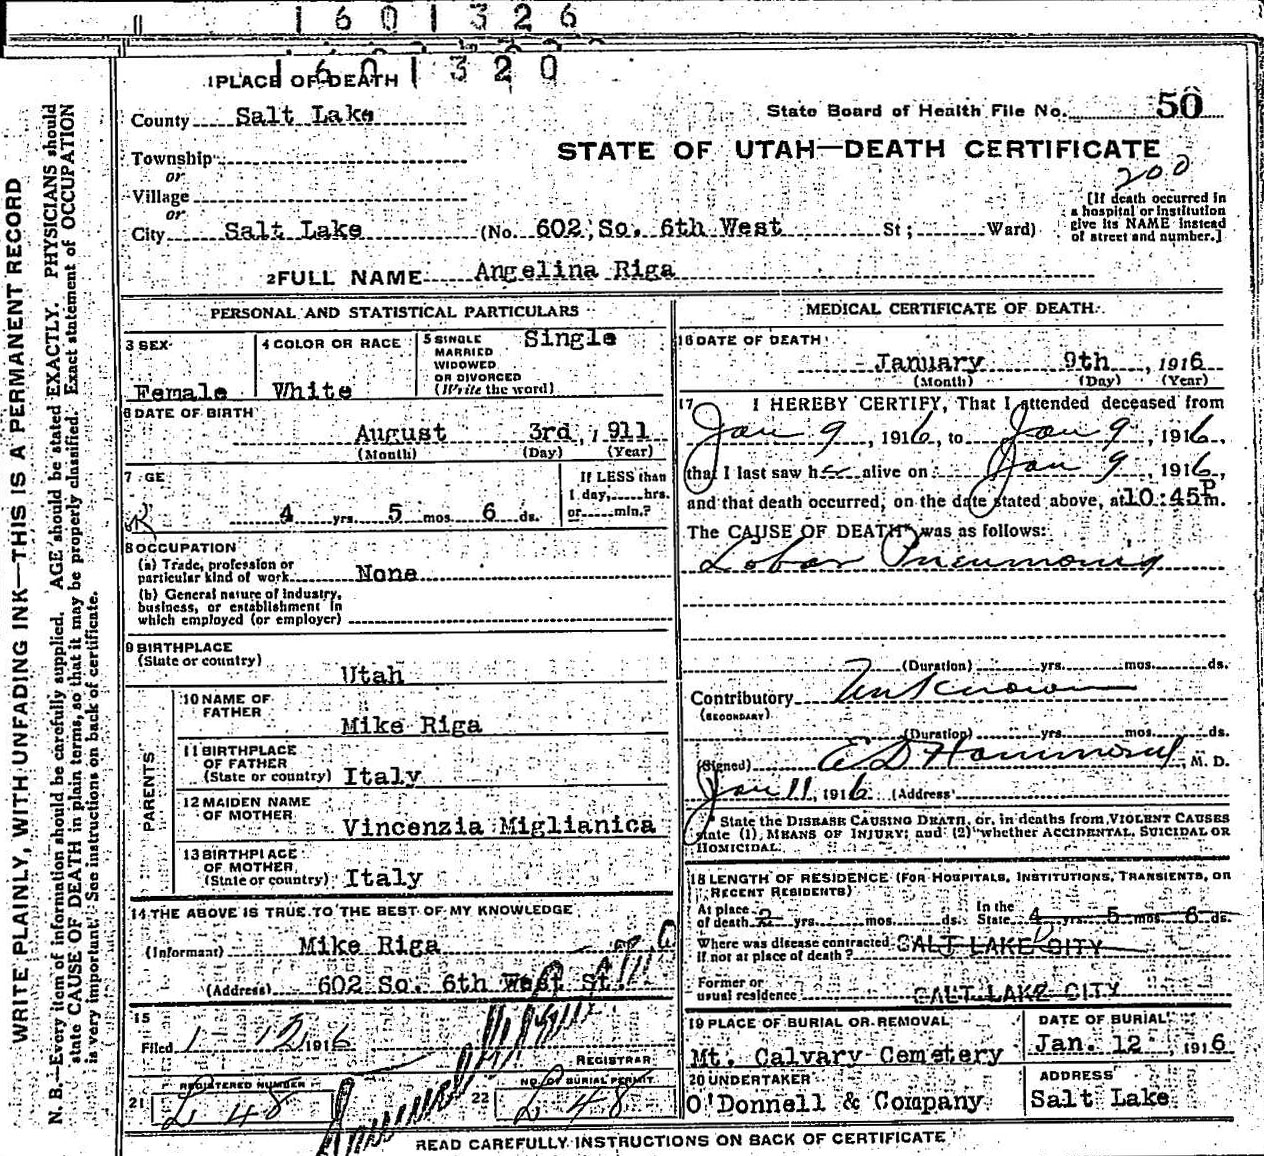 1601326
1PLACE OF DEATH
1601320
County Salt Lake
State Board of Health File No. 50
Township
or
STATE OF UTAH—DEATH CERTIFICATE
200
Village
or
City Salt Lake (No. 602, So. 6th West St; Ward)
[If death occurred in
a hospital or institution
give its NAME instead
of street and number.]
2FULL NAME Angelina Riga
PERSONAL AND STATISTICAL PARTICULARS
3 SEX
Female
4 COLOR OR RACE
White
5 SINGLE
MARRIED
WIDOWED
OR DIVORCED
(Write the word)
Single
6 DATE OF BIRTH
August 3rd, 1911
(Month) (Day) (Year)
7 GE
4 yrs. 5 mos. 6 ds.
If LESS than
1 day, hrs.
or min.?
8 OCCUPATION
(a) Trade, profession or
particular kind of work None
(b) General nature of industry,
business, or establishment in
which employed (or employer)
9 BIRTHPLACE
(State or country)
Utah
PARENTS
10 NAME OF
FATHER
Mike Riga
11 BIRTHPLACE
OF FATHER
(State or country) Italy
12 MAIDEN NAME
OF MOTHER
Vincenzia Miglianica
13 BIRTHPLACE
OF MOTHER
(State or country) Italy
14 THE ABOVE IS TRUE TO THE BEST OF MY KNOWLEDGE
(Informant) Mike Riga
(Address) 602 So. 6th West St.
15
Filed 1-12 1916
REGISTRAR
REGISTERED NUMBER
21 L 48
NO. OF BURIAL PERMIT
22 L 48
MEDICAL CERTIFICATE OF DEATH
16 DATE OF DEATH
January 9th, 1916
(Month) (Day) (Year)
17 I HEREBY CERTIFY, That I attended deceased from
Jan 9, 1916, to Jan 9, 1916,
that I last saw h alive on Jan 9, 1916,
and that death occurred, on the date stated above, at 10:45 P m.
The CAUSE OF DEATH* was as follows:
Lobar Pneumonia
(Duration) yrs. mos. ds.
Contributory Unknown
(SECONDARY)
(Duration) yrs. mos. ds.
(Signed) E D Hammond, M. D.
Jan 11, 1916 (Address)
* State the DISEASE CAUSING DEATH, or, in deaths from VIOLENT CAUSES
state (1) MEANS OF INJURY; and (2) whether ACCIDENTAL, SUICIDAL OR
HOMICIDAL.
18 LENGTH OF RESIDENCE (FOR HOSPITALS, INSTITUTIONS, TRANSIENTS, OR
RECENT RESIDENTS)
At place
of death 2 yrs. mos. ds.
In the
State 4 yrs. 5 mos. 6 ds.
Where was disease contracted
if not at place of death? SALT LAKE CITY
Former or
usual residence SALT LAKE CITY
19 PLACE OF BURIAL OR REMOVAL
Mt. Calvary Cemetery
DATE OF BURIAL
Jan. 12, 1916
20 UNDERTAKER
O'Donnell & Company
ADDRESS
Salt Lake
READ CAREFULLY INSTRUCTIONS ON BACK OF CERTIFICATE
WRITE PLAINLY, WITH UNFADING INK—THIS IS A PERMANENT RECORD
N. B.—Every item of information should be carefully supplied. AGE should be stated EXACTLY. PHYSICIANS should
state CAUSE OF DEATH in plain terms, so that it may be properly classified. Exact statement of OCCUPATION
is very important. See instructions on back of certificate.